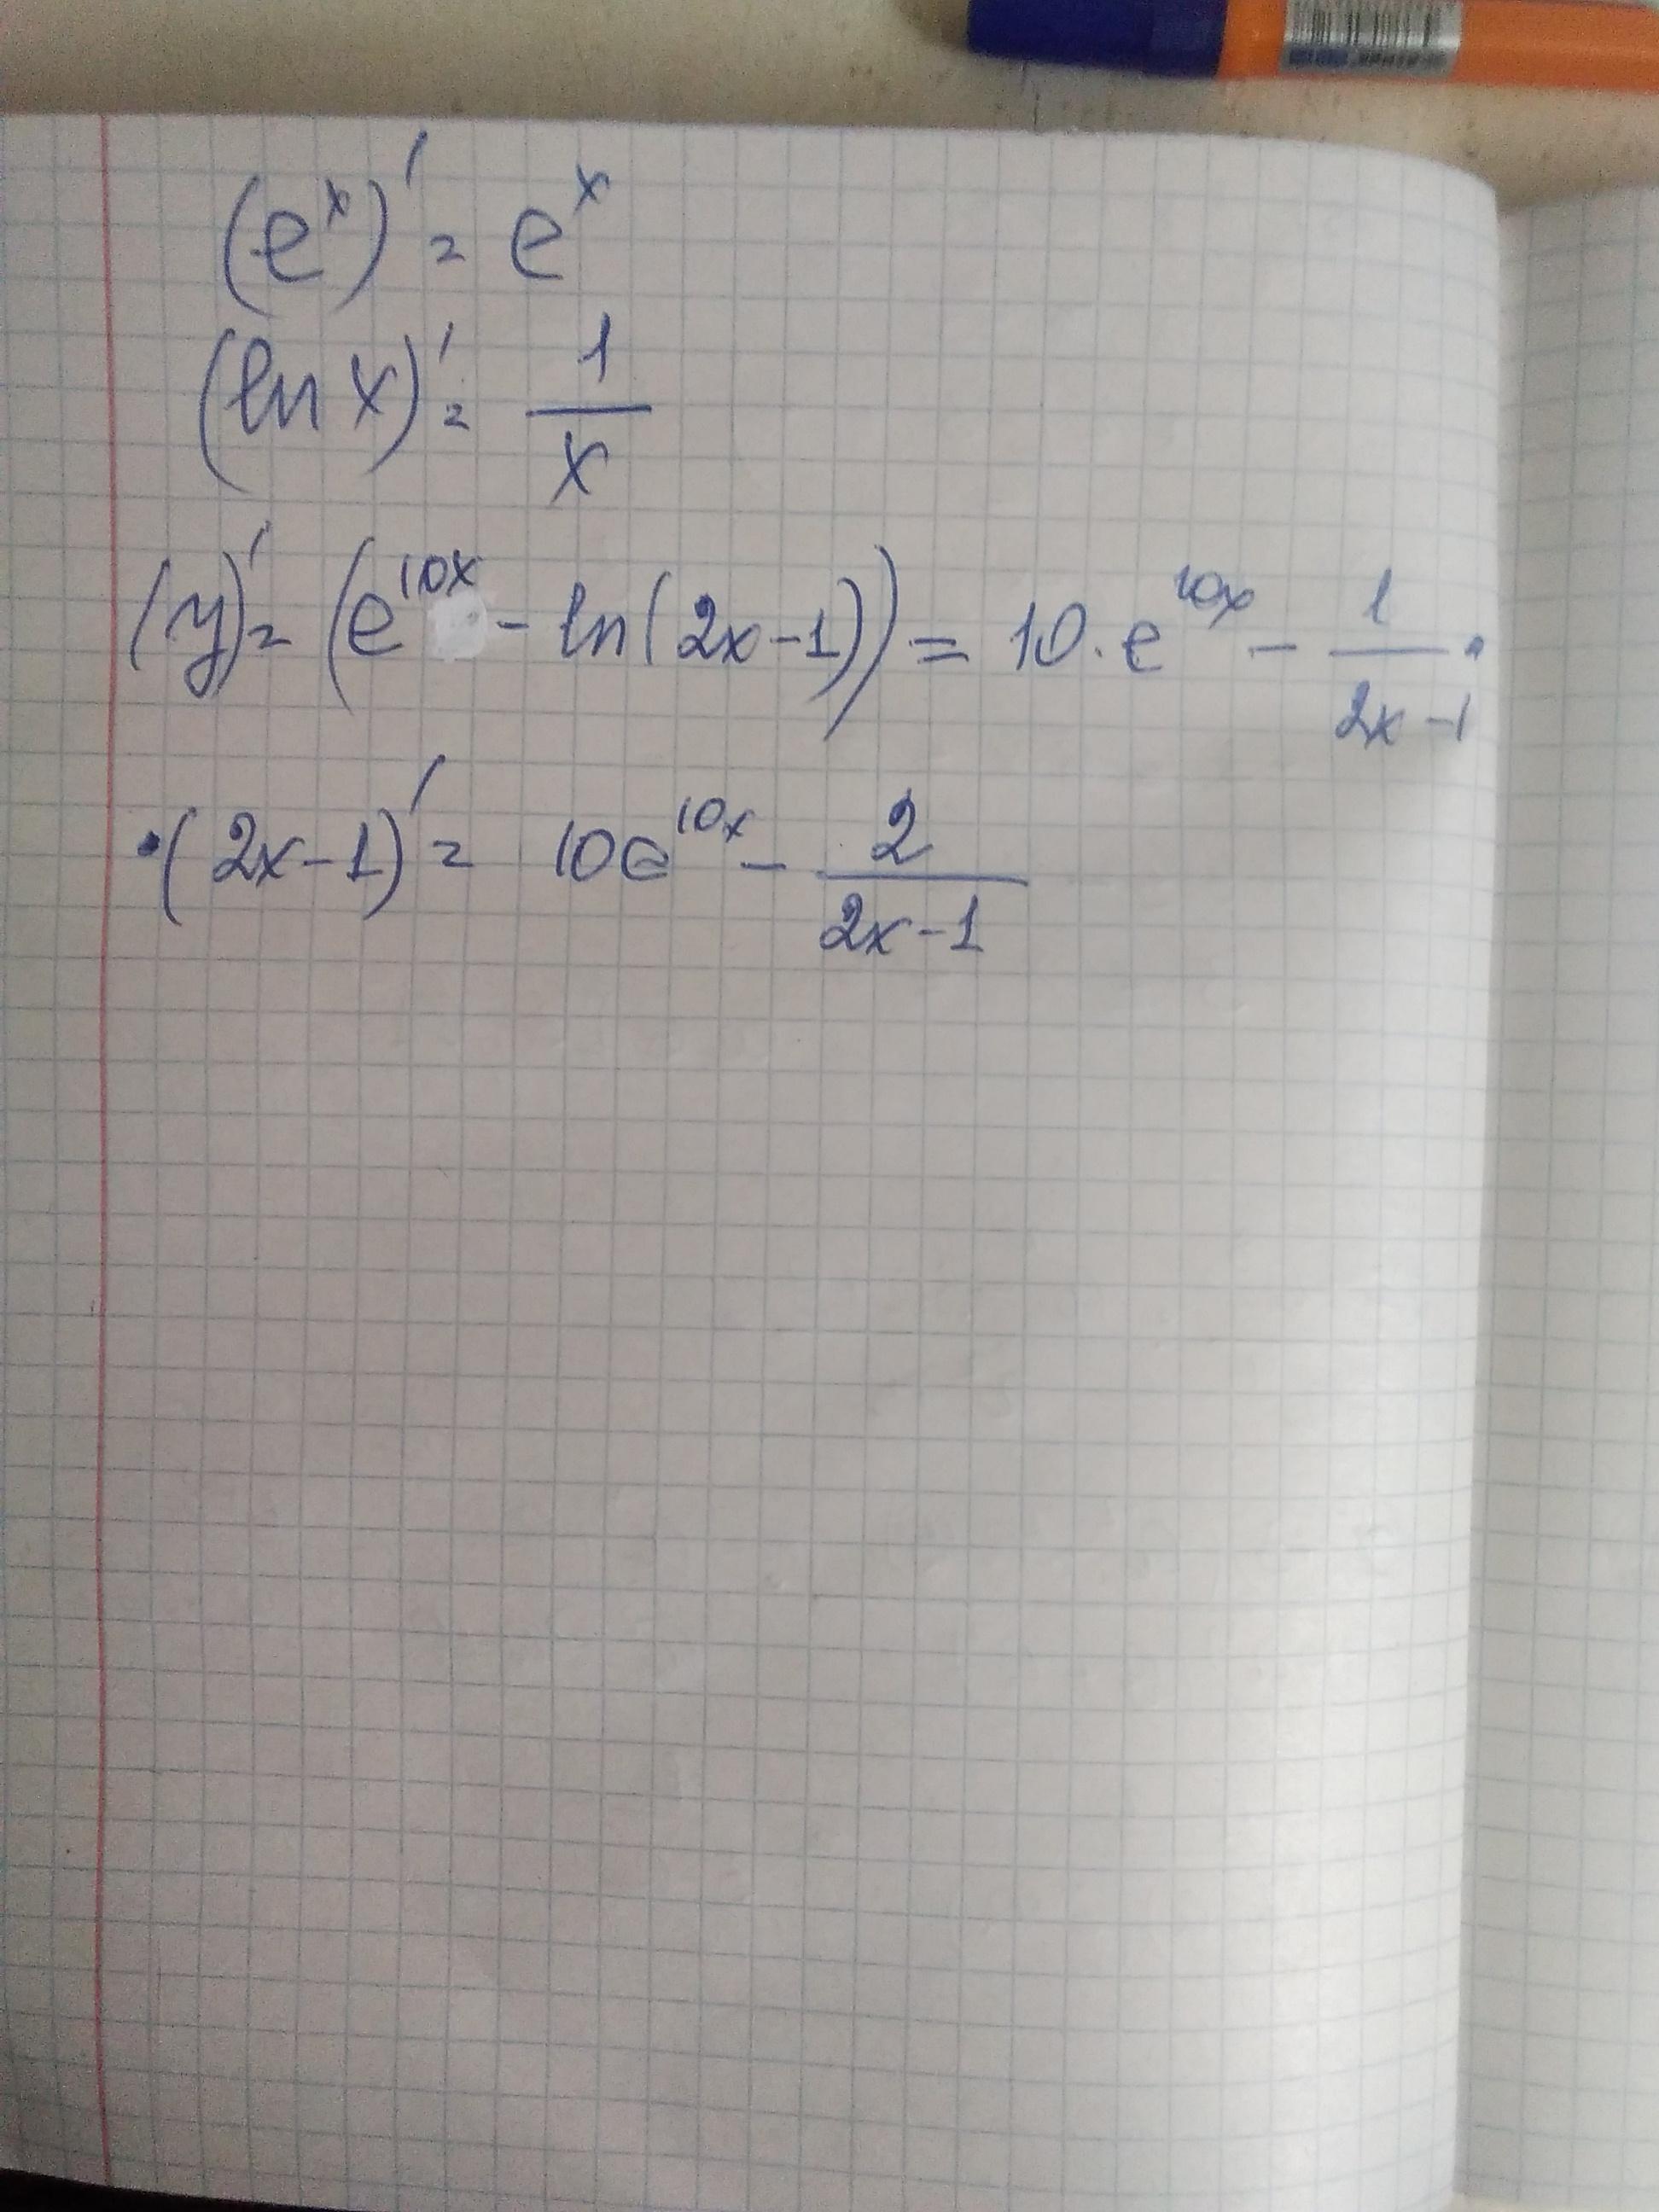 (eˣ)' = eˣ
(ln x)' = 1/x
(y)' = (e¹⁰ˣ - ln(2x-1)) = 10 · e¹⁰ˣ - 1/(2x-1) ·
· (2x-1)' = 10e¹⁰ˣ - 2/(2x-1)